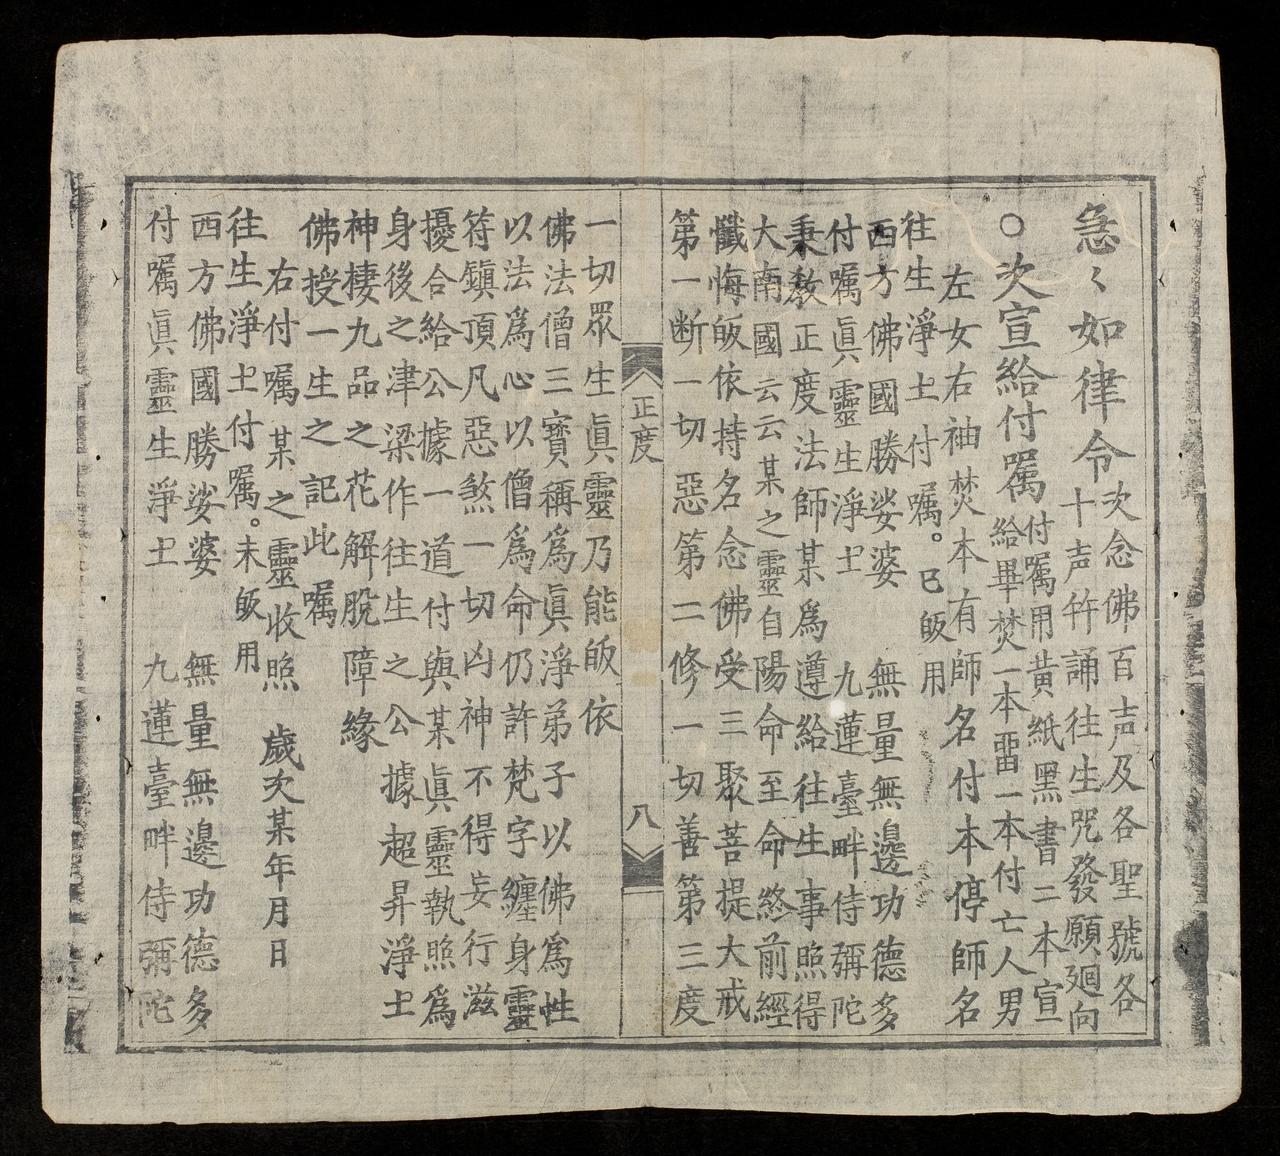 急〻如律令次念佛百声及各聖號各
十声竍誦往生咒發願廻向
○次宣給付嘱付嘱用黄紙黑書二本宣
給畢焚一本畱一本付亡人男
左女右袖焚本有師名付本停師名
往生淨土付嘱。已皈用
西方佛國勝娑婆　無量無邊功德多
付嘱眞靈生淨土　九蓮臺畔侍彌陀
秉教正度法師某爲遵給往生事照得
大南國云云某之靈自陽命至命終前經
懺悔皈依持名念佛受三聚菩提大戒
第一断一切惡第二修一切善第三度
正度　八
一切眾生眞靈乃能皈依
佛法僧三寶稱爲眞淨弟子以佛爲性
以法爲心以僧爲命仍許梵字纏身靈
符鎮頂凡惡煞一切凶神不得妄行滋
擾合給公據一道付與某眞靈執照爲
身後之津梁作往生之公據超昇淨土
神棲九品之花解脫障緣
佛授一生之記此嘱
右付嘱某之靈收照　歲次某年月日
往生淨土付嘱。未皈用
西方佛國勝娑婆　無量無邊功德多
付嘱眞靈生淨土　九蓮臺畔侍彌陀